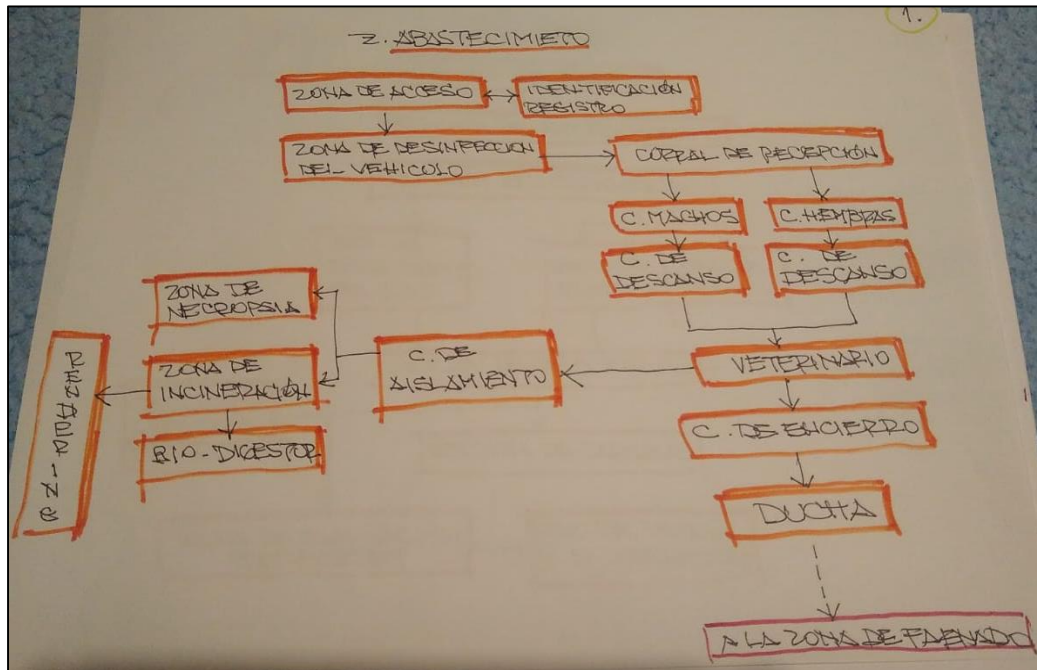 1.
Z. ABASTECIMIETO
ZONA DE ACCESO
IDENTIFICACIÓN
REGISTRO
ZONA DE DESINFECCION
DEL VEHICULO
CORRAL DE RECEPCIÓN
C. MACHOS
C. HEMBRAS
C. DE
DESCANSO
C. DE
DESCANSO
ZONA DE
NECROPSIA
C. DE
AISLAMIENTO
VETERINARIO
ZONA DE
INCINERACIÓN
RENDERING
BIO-DIGESTOR
C. DE ENCIERRO
DUCHA
A LA ZONA DE FAENADO